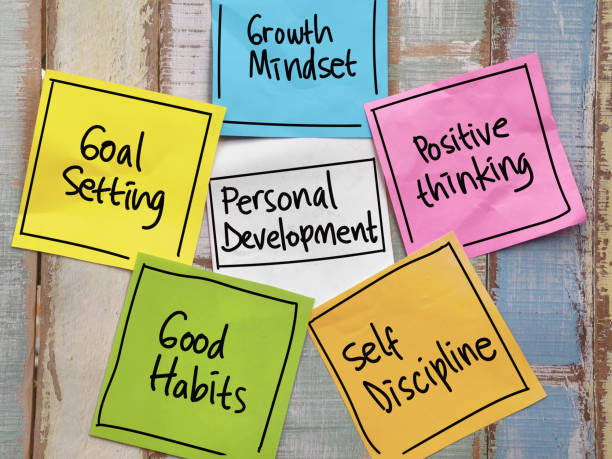 Growth
Mindset
Goal
Setting
Positive
thinking
Personal
Development
Good
Habits
Self
Discipline